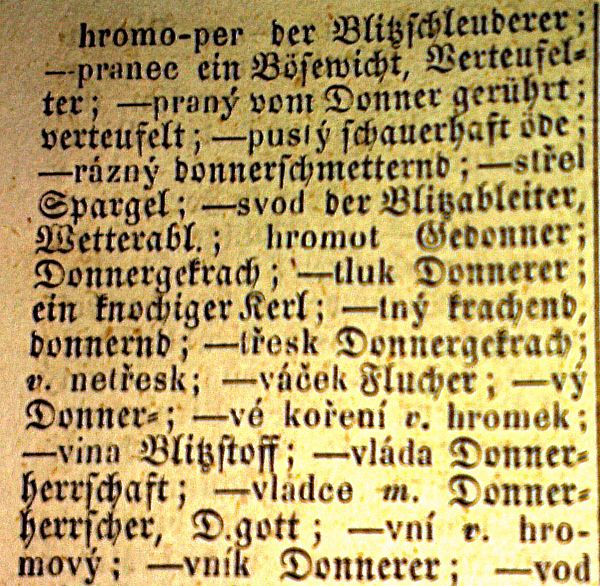 hromo-per der Blitzschleuderer;
—pranec ein Bösewicht, Verteufel=
ter; —praný vom Donner gerührt;
verteufelt; —pustý schauerhaft öde;
—rázný donnerschmetternd; —střel
Spargel; —svod der Blitzableiter,
Wetterabl.; hromot Gedonner;
Donnergekrach; —tluk Donnerer;
ein knochiger Kerl; —tný krachend,
donnernd; —třesk Donnergekrach;
v. netřesk; —váček Flucher; —vý
Donner=; —vé koření v. hromek;
—vina Blitzstoff; —vláda Donner=
herrschaft; —vladce m. Donner=
herrscher, D.gott; —vní v. hro-
mový; —vník Donnerer; —vod